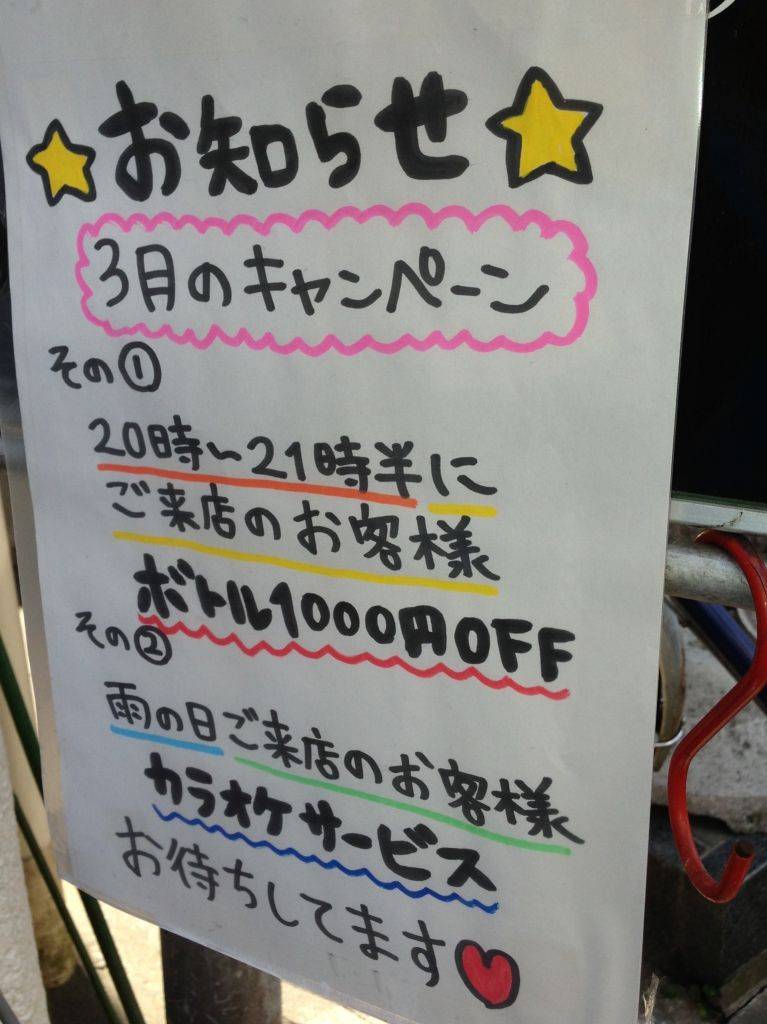 お知らせ
3月のキャンペーン
その①
20時~21時半に
ご来店のお客様
ボトル1000円OFF
その②
雨の日ご来店のお客様
カラオケサービス
お待ちしてます